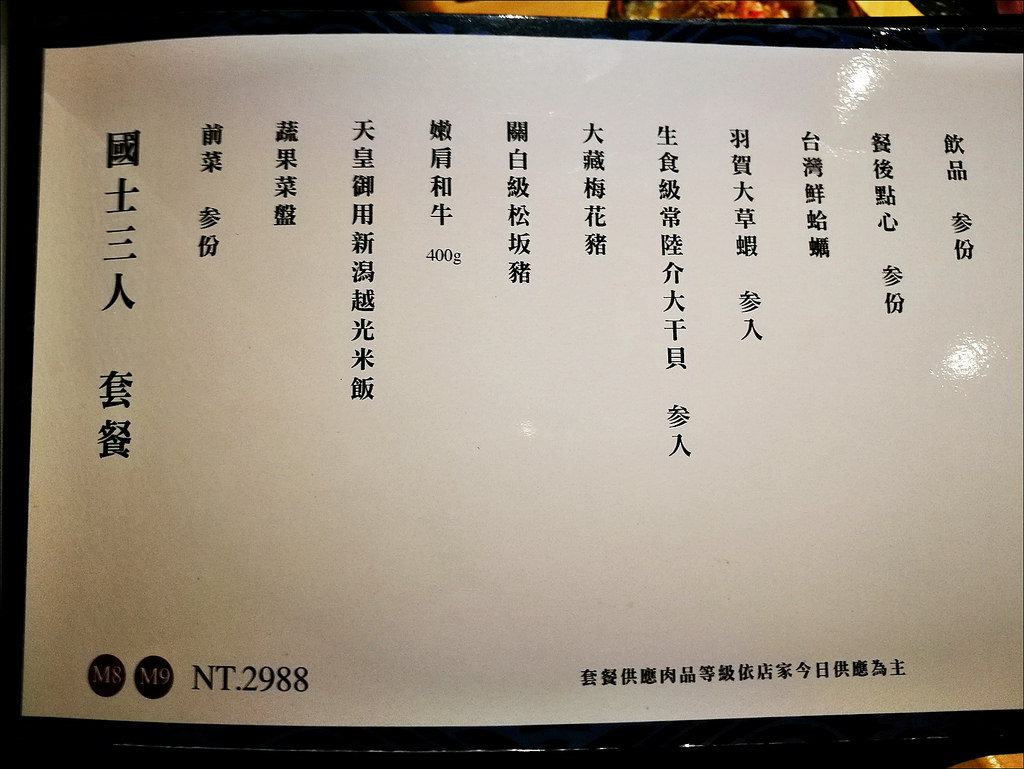 國士三人 套餐
前菜 参份
蔬果菜盤
天皇御用新潟越光米飯
嫩肩和牛 400g
關白級松坂豬
大藏梅花豬
生食級常陸介大干貝 参入
羽賀大草蝦 参入
台灣鮮蛤蠣
餐後點心 参份
飲品 参份
M8 M9 NT.2988
套餐供應肉品等級依店家今日供應為主